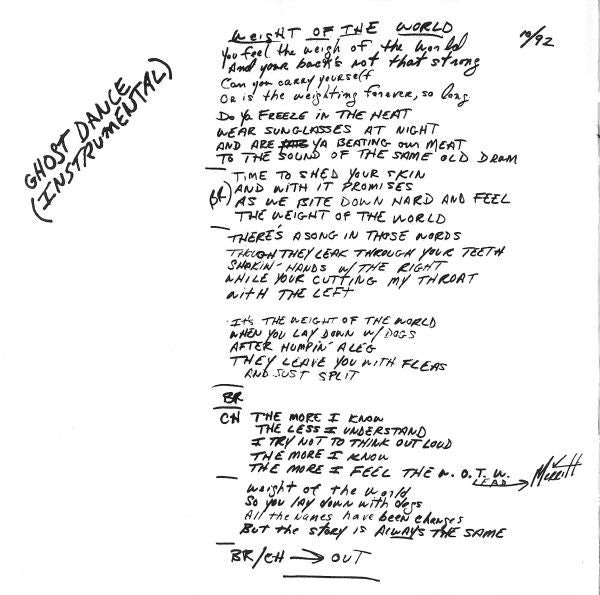 GHOST DANCE
(INSTRUMENTAL)
WEIGHT OF THE WORLD
10/92
You feel the weigh of the world
And your back's not that strong
Can you carry yourself
Or is the weighting forever, so long
Do Ya FREEZE IN THE HEAT
WEAR SUNGLASSES AT NIGHT
AND ARE YA BEATING OUR MEAT
TO THE SOUND OF THE SAME OLD DRUM
TIME TO SHED YOUR SKIN
BR) AND WITH IT PROMISES
AS WE BITE DOWN HARD AND FEEL
THE WEIGHT OF THE WORLD
THERE'S A SONG IN THOSE WORDS
THOUGH THEY LEAK THROUGH YOUR TEETH
SHAKIN' HANDS W/ THE RIGHT
WHILE YOUR CUTTING MY THROAT
WITH THE LEFT
It's THE WEIGHT OF THE WORLD
WHEN YOU LAY DOWN W/ DOGS
AFTER HUMPIN' A LEG
THEY LEAVE YOU WITH FLEAS
AND JUST SPLIT
BR
CH THE MORE I KNOW
THE LESS I UNDERSTAND
I TRY NOT TO THINK OUT LOUD
THE MORE I KNOW
THE MORE I FEEL THE W.O.T.W.
LEAD → Merritt
Weight of the world
So you lay down with dogs
All the names have been changes
But the story is ALWAYS THE SAME
BR/CH → OUT